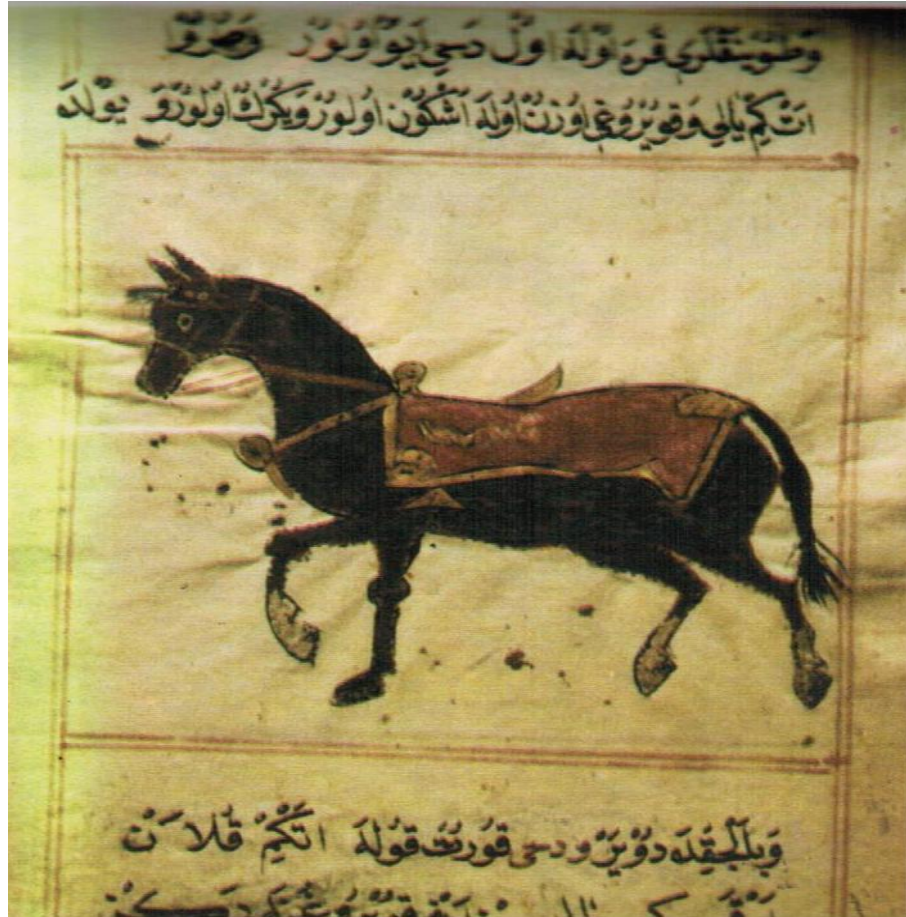 وَطُوينَقْلَرِى قَرَه اوُلَه اوُل دَخِى اَيوُ اوُلوُرْ وَصَرُو
اَتْ كِمْ يَالِى وَقوُيْرُوغِى اوُزنْ اوُلَه اَشْكوُنْ اوُلوُرْ وَيكْرَكْ اوُلوُرْ وَ يوُلْدَه
وَبَلْجِقْدَه دوُيَرْ وَدخى قوُرتْ قوُلَه اَتْكِمْ قُلَا نْ